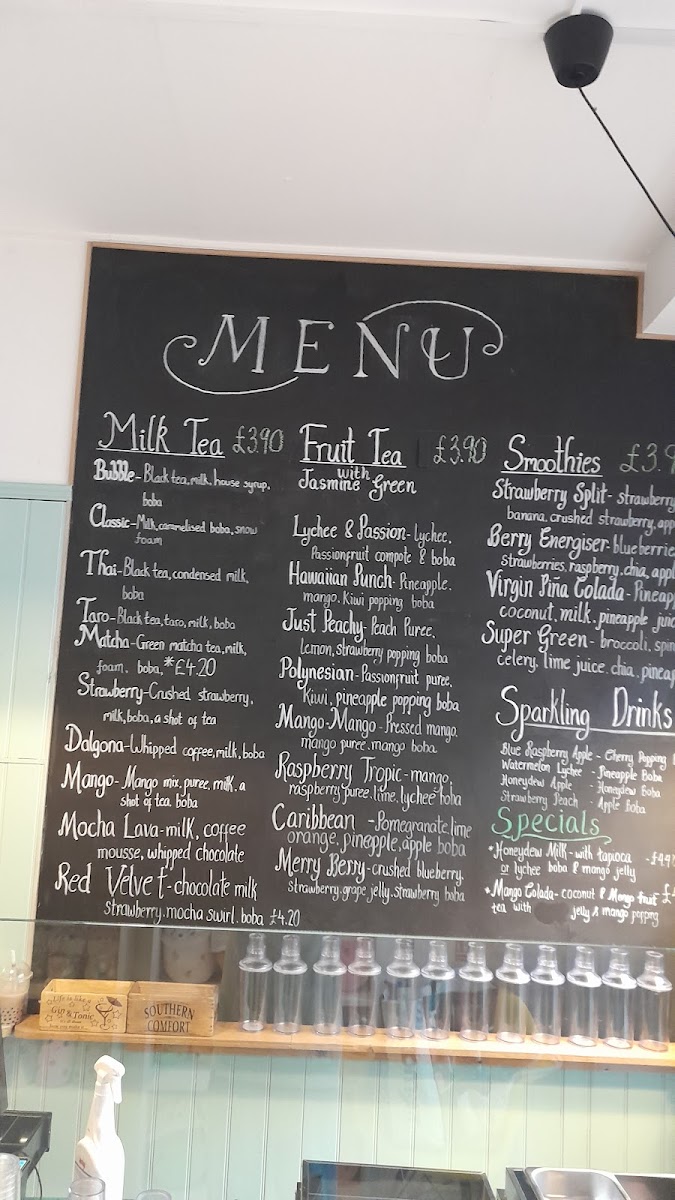 MENU
Milk Tea £3.90
Bubble - Black tea, milk, house syrup,
boba
Classic - Milk, caramelised boba, snow
foam
Thai - Black tea, condensed milk,
boba
Taro - Black tea, taro, milk, boba
Matcha - Green matcha tea, milk,
foam, boba, *£4.20
Strawberry - Crushed strawberry,
milk, boba, a shot of tea
Dalgona - Whipped coffee, milk, boba
Mango - Mango mix, puree, milk, a
shot of tea, boba
Mocha Lava - milk, coffee
mousse, whipped chocolate
Red Velvet - chocolate milk
strawberry, mocha swirl, boba £4.20
Fruit Tea £3.90
with
Jasmine Green
Lychee & Passion - lychee,
Passionfruit compote & boba
Hawaiian Punch - Pineapple,
mango, Kiwi popping boba
Just Peachy - Peach Puree,
lemon, strawberry popping boba
Polynesian - Passionfruit puree,
Kiwi, pineapple popping boba
Mango-Mango - Pressed mango,
mango puree, mango boba
Raspberry Tropic - mango,
raspberry puree, lime, lychee boba
Caribbean - Pomegranate, lime
orange, pineapple, apple boba
Merry Berry - crushed blueberry,
strawberry, grape jelly, strawberry boba
Smoothies £3.9
Strawberry Split - strawberry
banana, crushed strawberry, app
Berry Energiser - blueberrie
strawberries, raspberry, chia, appl
Virgin Piña Colada - Pineap
coconut, milk, pineapple juic
Super Green - broccoli, spin
celery, lime juice, chia, pineap
Sparkling Drinks
Blue Raspberry Apple - Cherry Popping
Watermelon Lychee - Pineapple Boba
Honeydew Apple - Honeydew Boba
Strawberry Peach - Apple Boba
Specials
*Honeydew Milk - with tapioca -£4.4
or lychee boba & mango jelly
*Mango Colada - coconut & Mango fruit £4
tea with jelly & mango poppng
Life is like a
Gin & Tonic
SOUTHERN
COMFORT